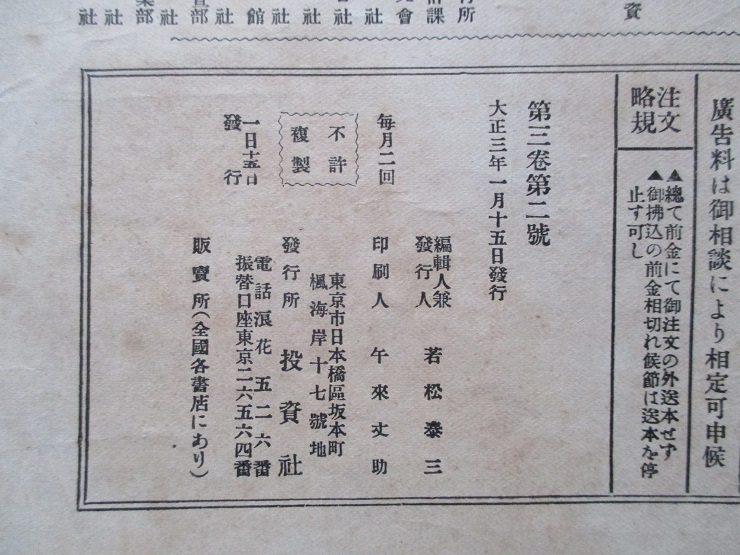 資
行所
課
會
社
社
社
社
館
社
部
社
部
社
社
廣告料は御相談により相定可申候
注文
略規
▲總て前金にて御注文の外送本せず
▲御拂込の前金相切れ候節は送本を停
止す可し
第三卷第二號
大正三年一月十五日發行
編輯人兼
發行人 若松泰三
印刷人 午來丈助
每月二回
一日十五日
發行
不許
複製
東京市日本橋區坂本町
楓海岸十七號地
發行所 投資社
電話浪花五二六番
振替口座東京二六五六四番
販賣所(全國各書店にあり)